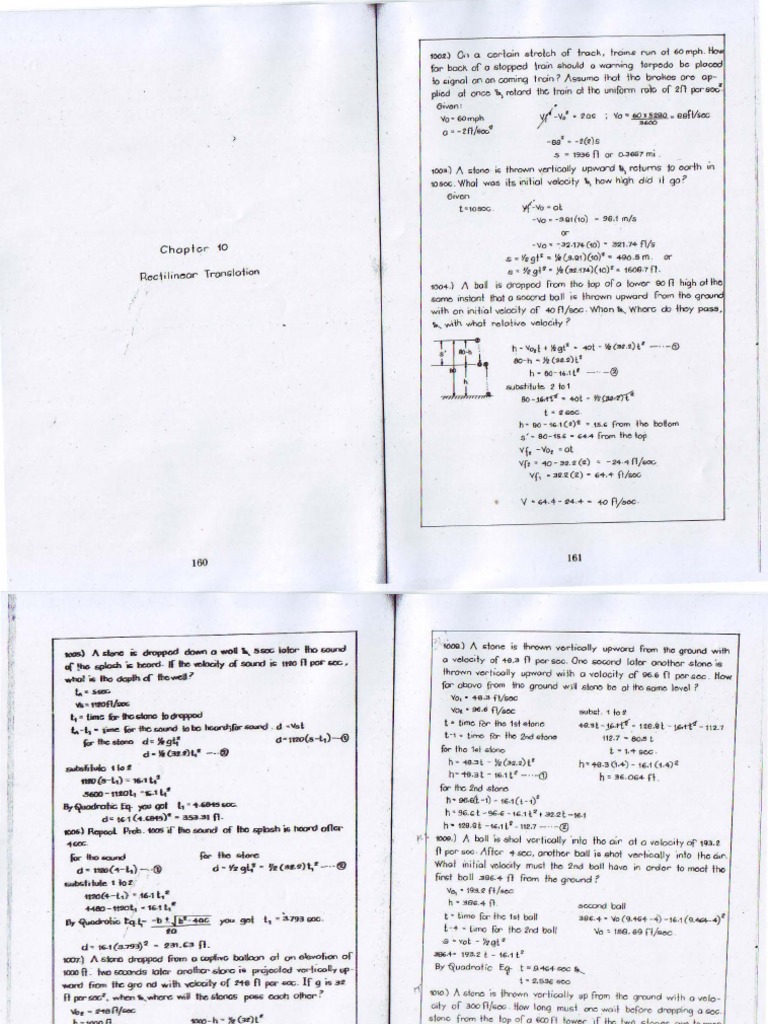 Chapter 10
Rectilinear Translation
160
1002.) On a certain stretch of track, trains run at 60 mph. How
far back of a stopped train should a warning torpedo be placed
to signal an on coming train? Assume that the brakes are ap-
plied at once &, retard the train at the uniform rate of 2ft per sec²
Given:
Vo = 60mph
a = -2ft/sec²
Vf² - Vo² = 2as ; Vo = 60 x 5280 / 3600 = 88ft/sec
-88² = -2(2)s
s = 1936 ft or 0.3667 mi.
1003.) A stone is thrown vertically upward &, returns to earth in
10sec. What was its initial velocity &, how high did it go?
Given
t = 10sec.
Vf - Vo = at
-Vo = -9.81(10) = 98.1 m/s
or
-Vo = -32.174(10) = 321.74 fl/s
s = ½ gt² = ½ (9.81)(10)² = 490.5 m. or
s = ½ gt² = ½ (32.174)(10)² = 1608.7 ft.
1004.) A ball is dropped from the top of a tower 80 ft high at the
same instant that a second ball is thrown upward from the ground
with an initial velocity of 40 ft/sec. When &, Where do they pass,
&, with what relative velocity?
s' 80-h
80 h
h = Vo₂t + ½gt² = 40t - ½(32.2)t² ------①
80-h = ½(32.2)t²
h = 80-16.1t² ------②
substitute 2 to 1
80-16.1t² = 40t - ½(32.2)t²
t = 2 sec.
h = 80-16.1(2)² = 15.6 from the bottom
s' = 80-15.6 = 64.4 from the top
Vf₂ - Vo₂ = at
Vf₂ = 40-32.2(2) = -24.4 fl/sec
Vf₁ = 32.2(2) = 64.4 ft/sec
V = 64.4 - 24.4 = 40 ft/sec.
161
1005.) A stone is dropped down a well &, 5sec later the sound
of the splash is heard. If the velocity of sound is 1120 ft per sec,
what is the depth of the well?
tₐ = 5sec
Vs = 1120ft/sec
t₁ = time for the stone to dropped
tₐ-t₁ = time for the sound to be heard; for sound. d = Vst
for the stone d = ½gt₁² d=1120(5-t₁)-①
d = ½(32.2)t₁² --②
substitute 1 to 2
1120(5-t₁) = 16.1t₁²
5600-1120t₁ = 16.1t₁²
By Quadratic Eq. you got t₁ = 4.6845 sec.
d = 16.1(4.6845)² = 353.31 ft.
1006.) Repeat Prob. 1005 if the sound of the splash is heard after
4 sec.
for the sound for the stone
d = 1120(4-t₁) --① d = ½gt₁² = ½(32.2)t₁ --②
substitute 1 to 2
1120(4-t₁) = 16.1t₁²
4480-1120t₁ = 16.1t₁²
By Quadratic Eq. t₁ = -b ± √b²-4ac / 2a you got t₁ = 3.793 sec.
d = 16.1(3.793)² = 231.63 ft.
1007.) A stone dropped from a captive balloon at an elevation of
1000 ft. two seconds later another stone is projected vertically up-
ward from the ground with velocity of 248 ft per sec. If g is 32
ft per sec², when &, where will the stones pass each other?
Vo₂ = 248 ft/sec
h = 1000 ft 1000-h = ½(32)t²
1008.) A stone is thrown vertically upward from the ground with
a velocity of 48.3 ft per sec. One second later another stone is
thrown vertically upward with a velocity of 96.6 ft per sec. How
far above from the ground will stone be at the same level?
Vo₁ = 48.3 ft/sec
Vo₂ = 96.6 ft/sec subst. 1 to 2
t = time for the 1st stone 48.3t - 16.1t² = 128.8t - 16.1t² - 112.7
t-1 = time for the 2nd stone 112.7 = 80.5 t
for the 1st stone t = 1.4 sec.
h = 48.3t - ½(32.2)t² h = 48.3(1.4) - 16.1(1.4)²
h = 48.3t - 16.1t² ----① h = 36.064 ft.
for the 2nd stone
h = 96.6(t-1) - 16.1(t-1)²
h = 96.6t - 96.6 - 16.1t² + 32.2t - 16.1
h = 128.8t - 16.1t² - 112.7 ----②
1009.) A ball is shot vertically into the air at a velocity of 193.2
ft per sec. After 4 sec, another ball is shot vertically into the air.
What initial velocity must the 2nd ball have in order to meet the
first ball 386.4 ft from the ground?
Vo₁ = 193.2 ft/sec
h = 386.4 ft. second ball
t = time for the 1st ball 386.4 = Vo (9.464-4) - 16.1(9.464-4)²
t-4 = time for the 2nd ball Vo = 158.69 ft/sec.
s = vot - ½gt²
386.4 = 193.2 t - 16.1t²
By Quadratic Eq. t = 9.464 sec &,
t = 2.536 sec
1010.) A stone is thrown vertically up from the ground with a velo-
city of 300 ft/sec. How long must one wait before dropping a sec.
stone from the top of a 600 ft tower if the two stones are to pass